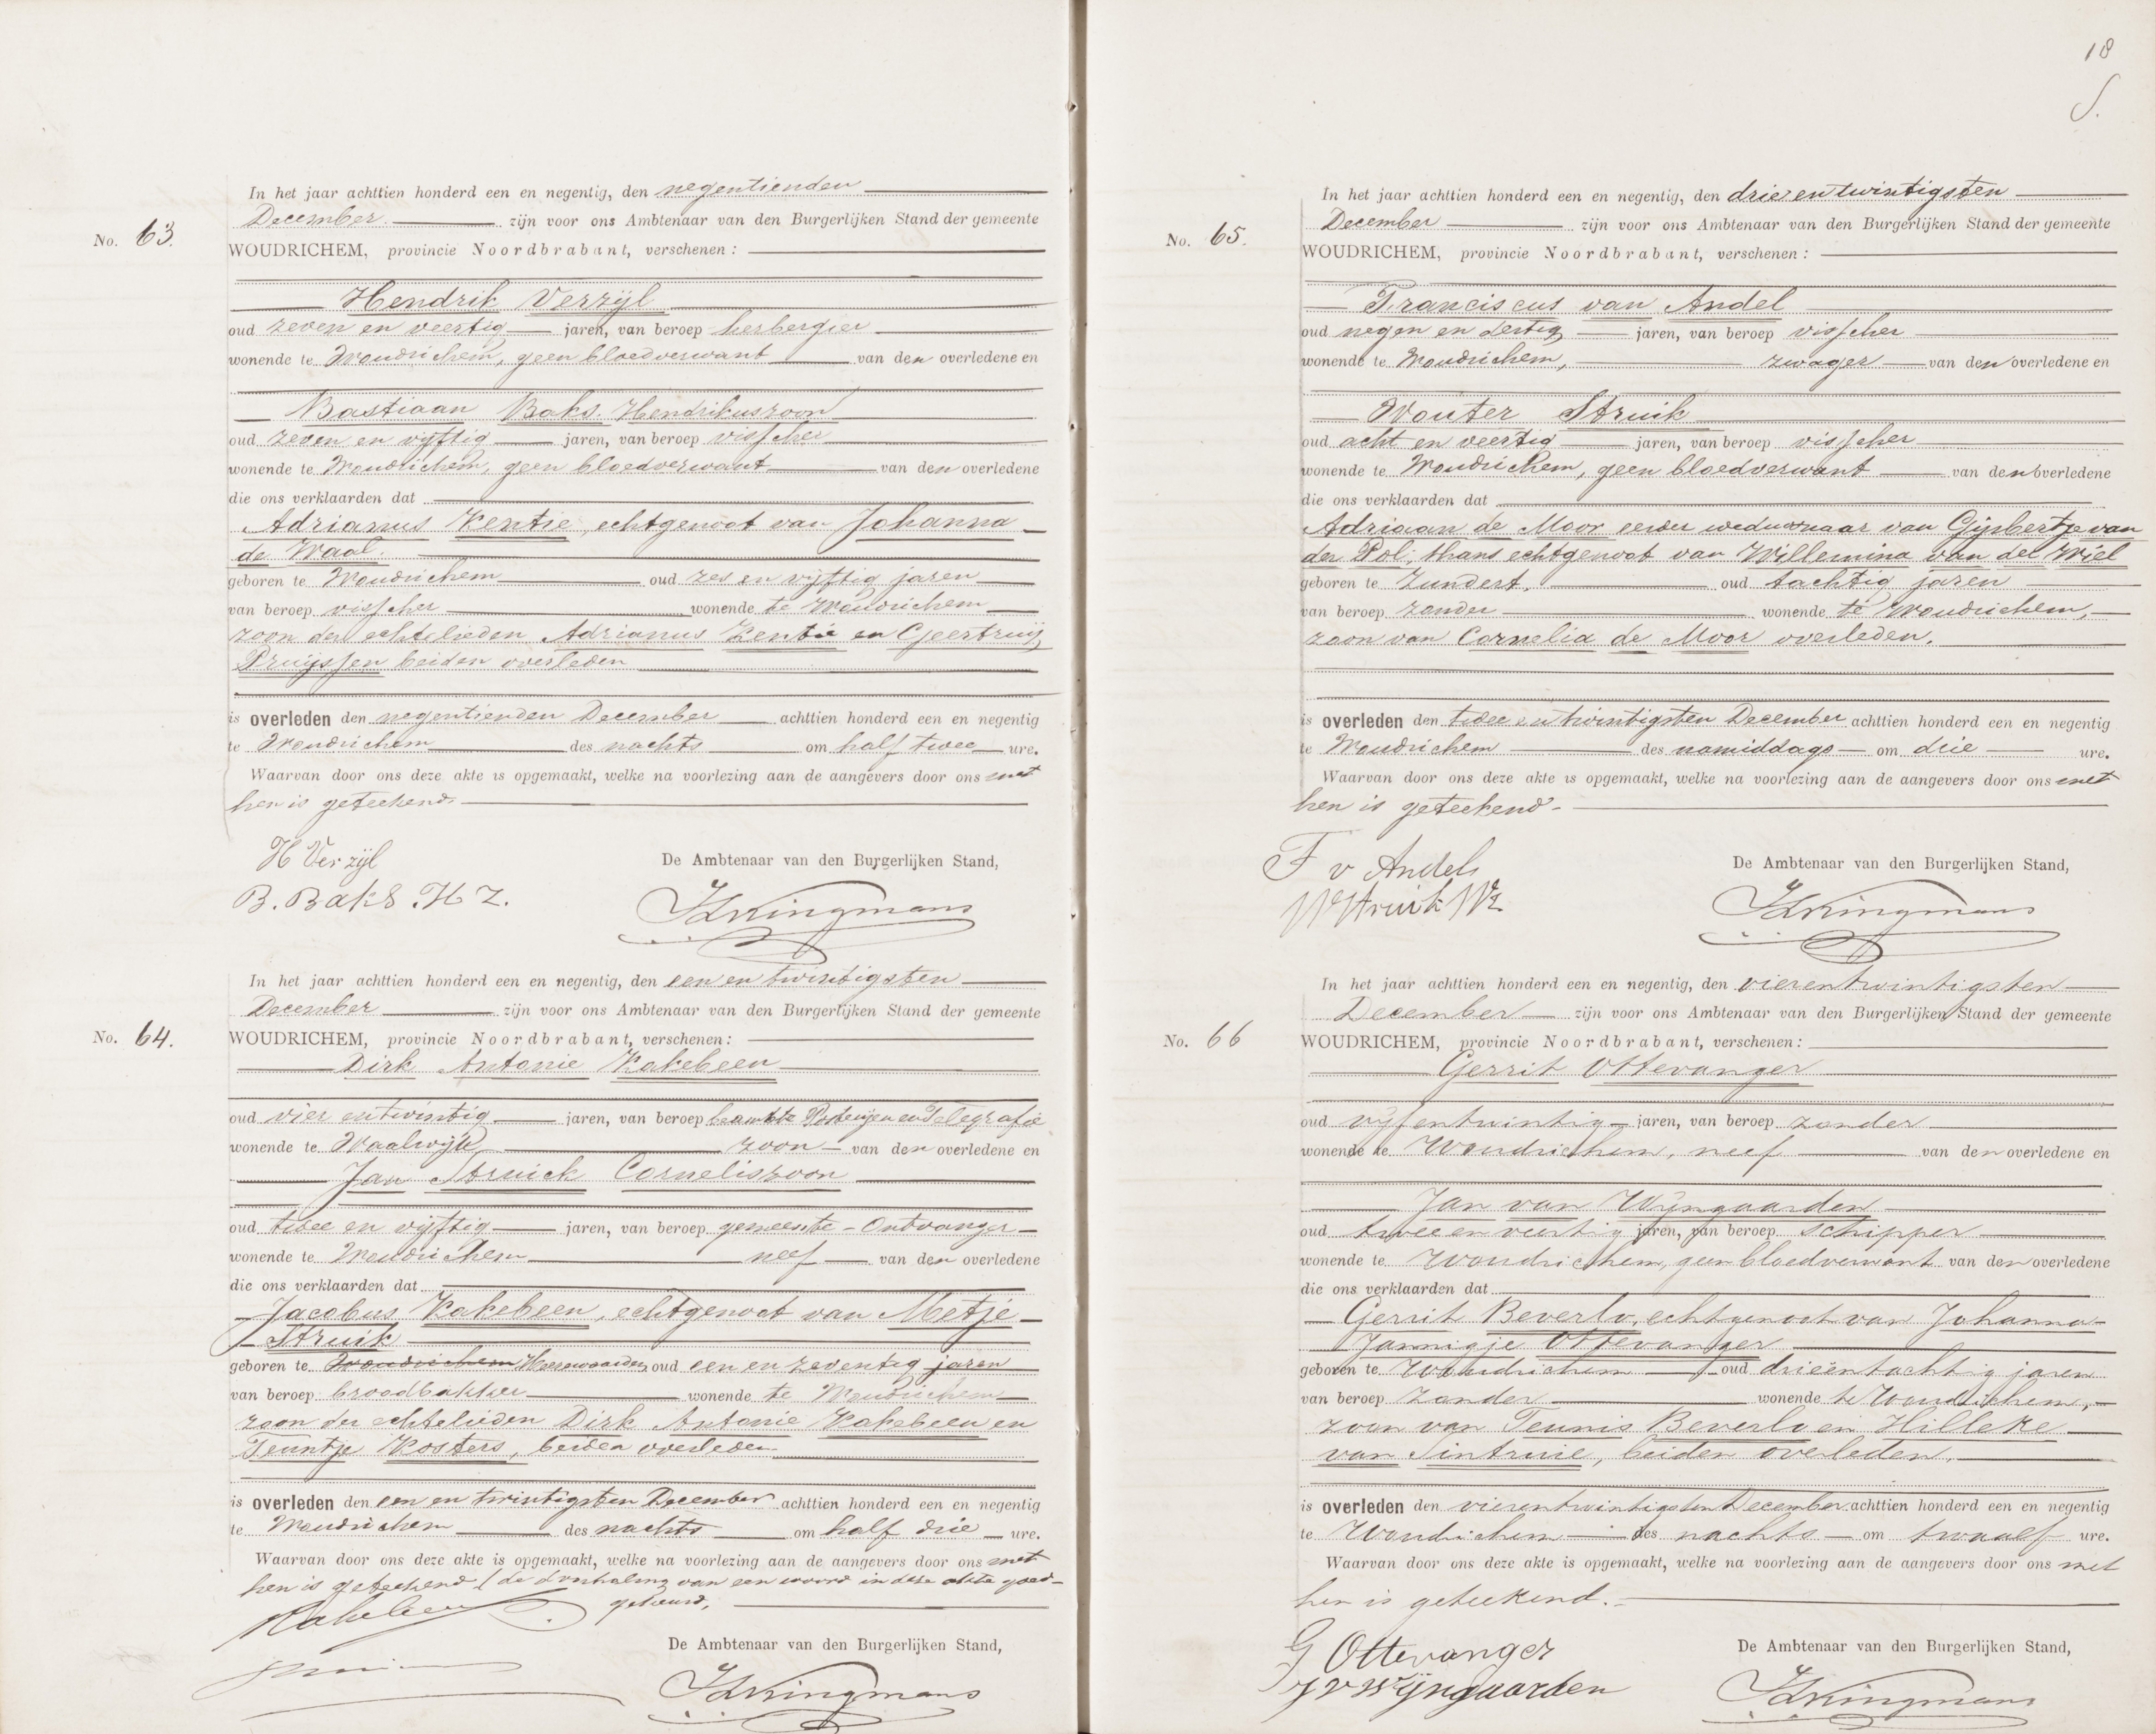 No. 63.
In het jaar achttien honderd een en negentig, den negentienden
December zijn voor ons Ambtenaar van den Burgerlijken Stand der gemeente
WOUDRICHEM, provincie Noordbrabant, verschenen:
Hendrik Verzijl
oud zeven en veertig jaren, van beroep herbergier
wonende te Woudrichem, geen bloedverwant van den overledene en
Bastiaan Baks Hendrikuszoon
oud zeven en vijftig jaren, van beroep visscher
wonende te Woudrichem, geen bloedverwant van den overledene
die ons verklaarden dat
Adrianus Kentie, echtgenoot van Johanna
de Waal.
geboren te Woudrichem oud zes en vijftig jaren
van beroep visscher wonende te Woudrichem
zoon der echtelieden Adrianus Kentie en Geertruij
Pruijssen beiden overleden
is overleden den negentienden December achttien honderd een en negentig
te Woudrichem des nachts om half twee ure.
Waarvan door ons deze akte is opgemaakt, welke na voorlezing aan de aangevers door ons met
hen is geteekend.
H Verzijl
B. Baks. H Z.
De Ambtenaar van den Burgerlijken Stand,
No. 64.
In het jaar achttien honderd een en negentig, den een en twintigsten
December zijn voor ons Ambtenaar van den Burgerlijken Stand der gemeente
WOUDRICHEM, provincie Noordbrabant, verschenen:
Dirk Antonie Kakebeen
oud vier en twintig jaren, van beroep beambte Posterijen en Telegrafie
wonende te Waalwijk zoon van den overledene en
Jan Struick Corneliszoon
oud twee en vijftig jaren, van beroep gemeente-Ontvanger
wonende te Woudrichem neef van den overledene
die ons verklaarden dat
Jacobus Kakebeen, echtgenoot van Metje
Struik
geboren te Woudrichem Heerewaarden oud een en zeventig jaren
van beroep broodbakker wonende te Woudrichem
zoon der echtelieden Dirk Antonie Kakebeen en
Teuntje Kosters, beiden overleden
is overleden den een en twintigsten December achttien honderd een en negentig
te Woudrichem des nachts om half drie ure.
Waarvan door ons deze akte is opgemaakt, welke na voorlezing aan de aangevers door ons met
hen is geteekend (de doorhaling van een woord in deze akte goed-
gekeurd,
Kakebeen
De Ambtenaar van den Burgerlijken Stand,
18
No. 65.
In het jaar achttien honderd een en negentig, den drie en twintigsten
December zijn voor ons Ambtenaar van den Burgerlijken Stand der gemeente
WOUDRICHEM, provincie Noordbrabant, verschenen:
Franciscus van Andel
oud negen en dertig jaren, van beroep visscher
wonende te Woudrichem, zwager van den overledene en
Wouter Struik
oud acht en veertig jaren, van beroep visscher
wonende te Woudrichem, geen bloedverwant van den overledene
die ons verklaarden dat
Adriaan de Moor eerder weduwnaar van Gijsbertje van
der Pol, thans echtgenoot van Willemina van der Wiel
geboren te Zundert, oud tachtig jaren
van beroep zonder wonende te Woudrichem,
zoon van Cornelia de Moor overleden.
is overleden den twee en twintigsten December achttien honderd een en negentig
te Woudrichem des namiddags om drie ure.
Waarvan door ons deze akte is opgemaakt, welke na voorlezing aan de aangevers door ons met
hen is geteekend.
F v Andel
W Struik Wz
De Ambtenaar van den Burgerlijken Stand,
No. 66
In het jaar achttien honderd een en negentig, den vierentwintigsten
December zijn voor ons Ambtenaar van den Burgerlijken Stand der gemeente
WOUDRICHEM, provincie Noordbrabant, verschenen:
Gerrit Ottevanger
oud vijfentwintig jaren, van beroep zonder
wonende te Woudrichem, neef van den overledene en
Jan van Wijngaarden
oud tweeenveertig jaren, van beroep schipper
wonende te Woudrichem, geen bloedverwant van den overledene
die ons verklaarden dat
Gerrit Beverlo, echtgenoot van Johanna
Jannigje Ottevanger
geboren te Woudrichem oud drieëntachtig jaren
van beroep zonder wonende te Woudrichem,
zoon van Teunis Beverlo en Hilleke
van Sintruie, beiden overleden.
is overleden den vierentwintigsten December achttien honderd een en negentig
te Woudrichem des nachts om twaalf ure.
Waarvan door ons deze akte is opgemaakt, welke na voorlezing aan de aangevers door ons met
hen is geteekend.
G Ottevanger
J v Wijngaarden
De Ambtenaar van den Burgerlijken Stand,